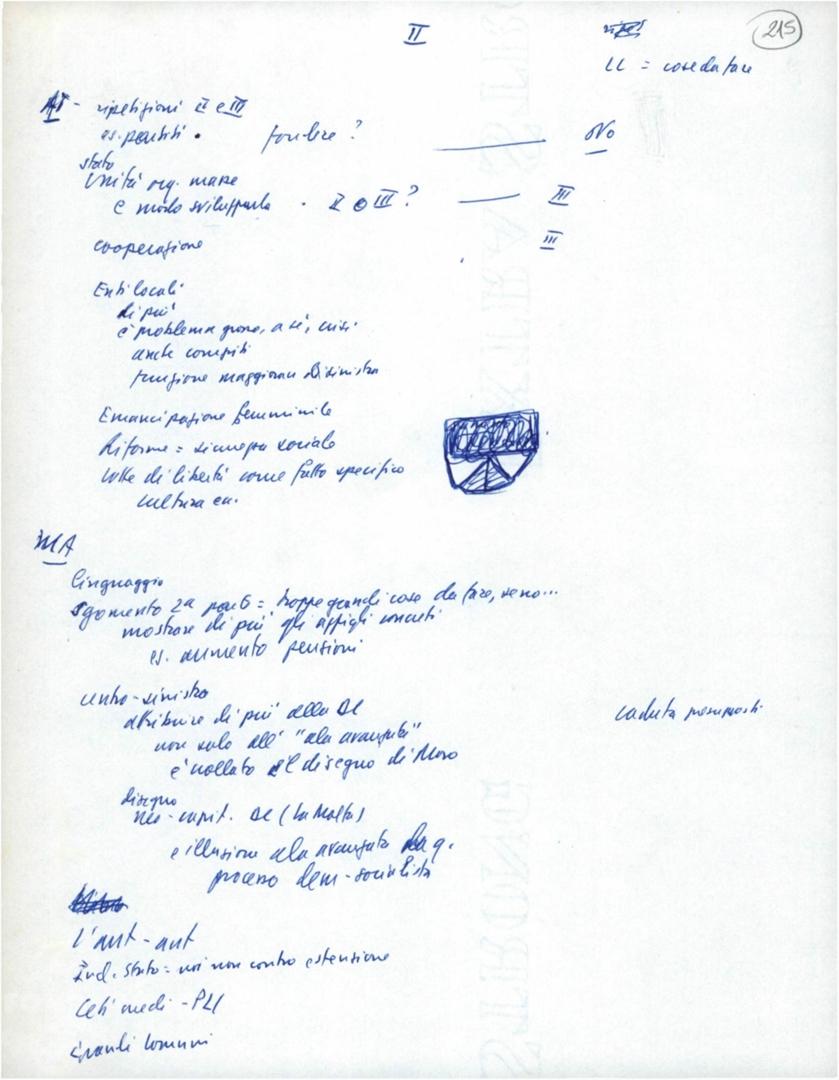 II
215
LL = cose da fare
AT - ripetizioni II e III
es. partiti. fondere? No
stato
Unità org. masse
è modo svilupparla . II o III? III
cooperazione III
Enti locali
di più
è problema grosso, a sé, crisi
anche compiti
funzione maggioranze di sinistra
Emancipazione femminile
Riforme = sicurezza sociale
lotte di libertà come fatto specifico
cultura ecc.
MA
linguaggio
sgomento 2a parte = troppe grandi cose da fare, se no...
mostrare di più gli appigli concreti
es. aumento pensioni
centro-sinistra
attribuire di più alla DC
non solo all' "ala avanzata"
è crollato il disegno di Moro
caduta presupposti
disegno
neo-capit. DC (La Malfa)
e illusione ala avanzata da q.
processo dem-socialista
L'aut-aut
Ind. Stato = noi non contro estensione
Ceti medi - PLI
Grandi Comuni